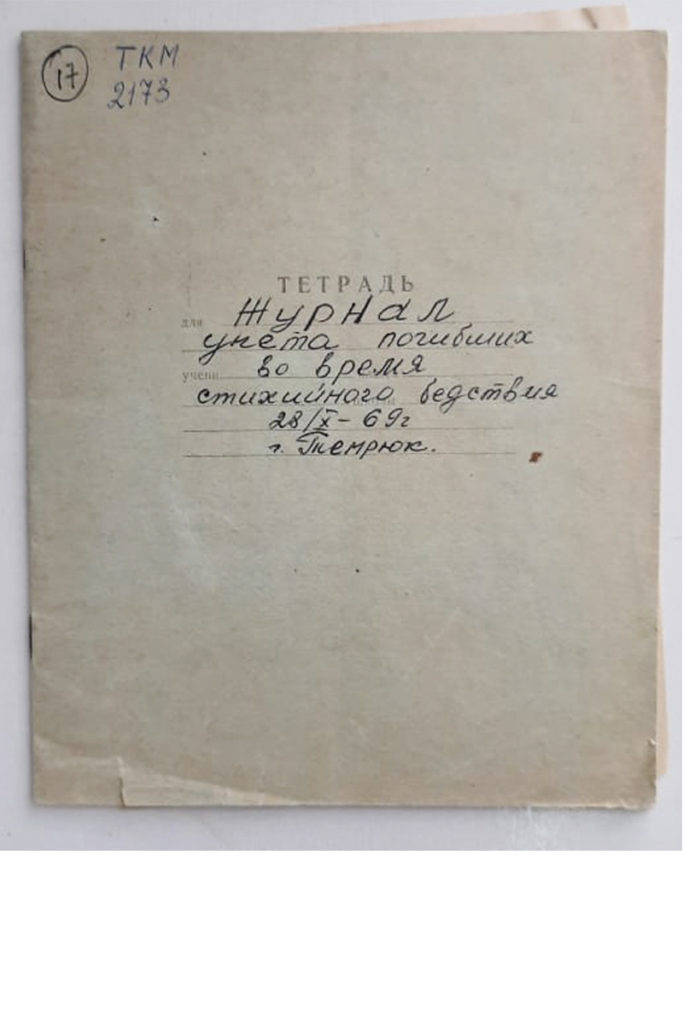 17
ТКМ
2173
ТЕТРАДЬ
для Журнал
учета погибших
учени во время
стихийного бедствия
28/X-69г
г. Темрюк.